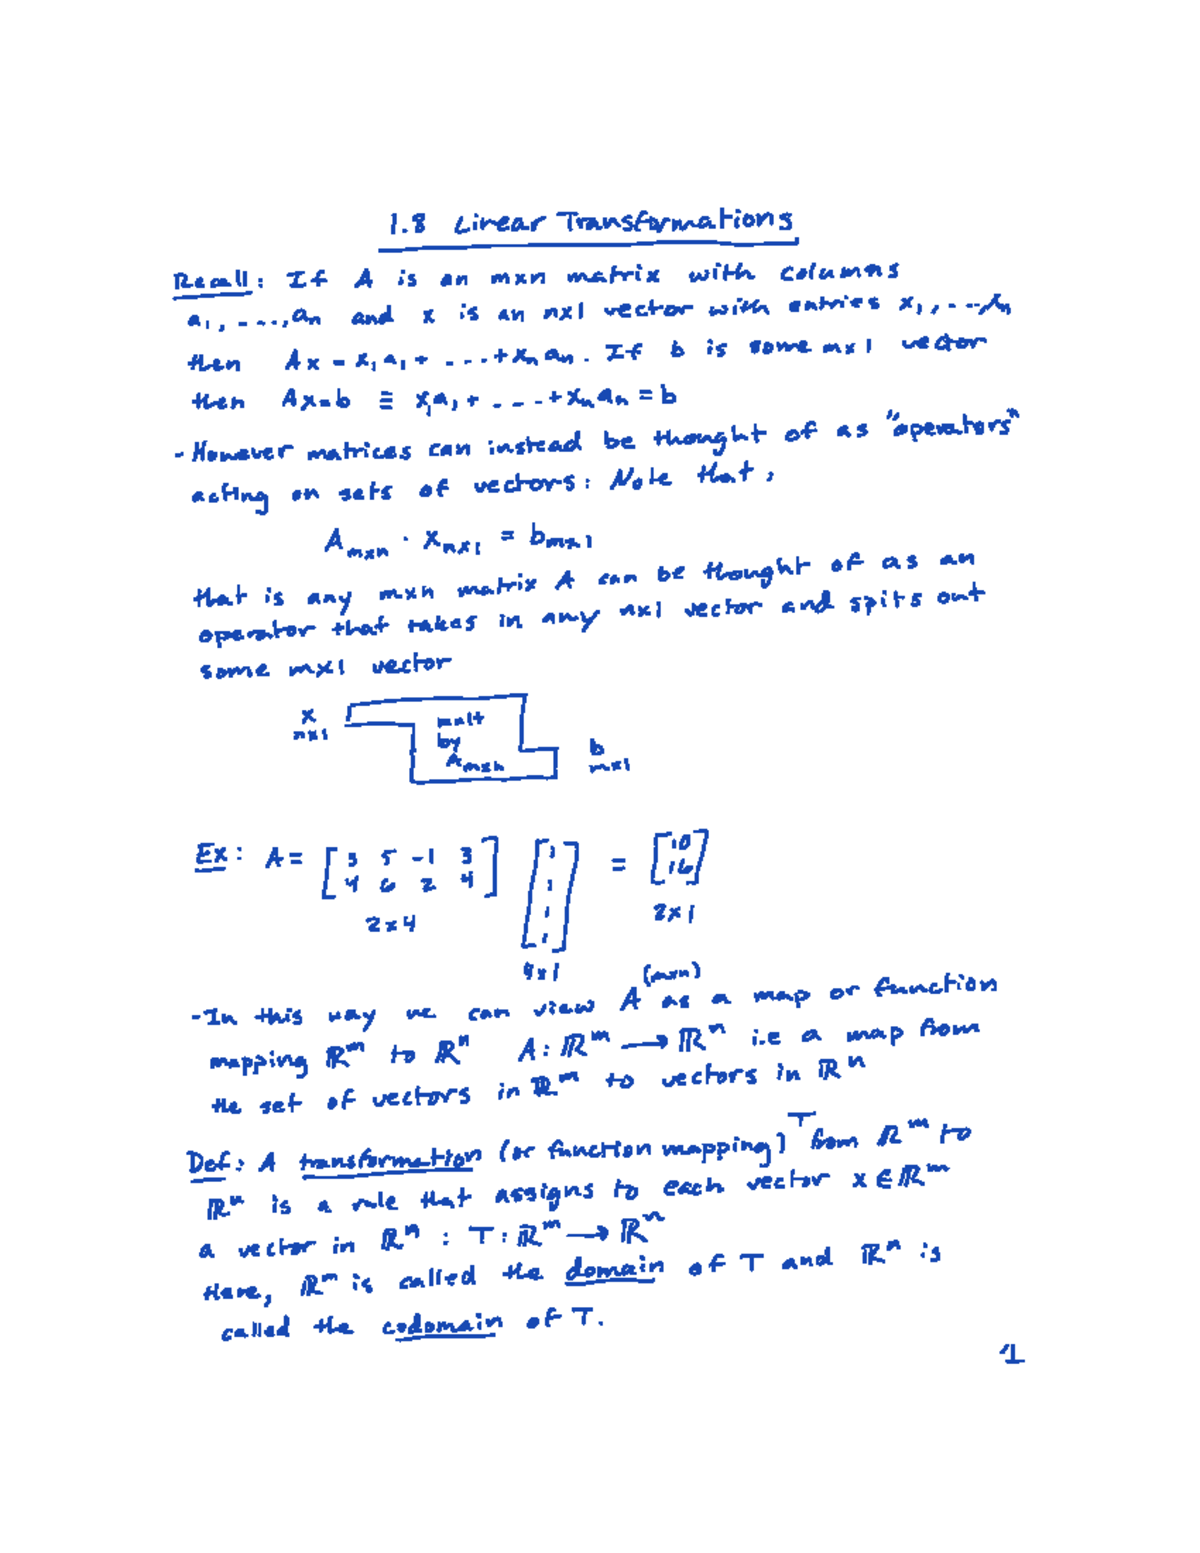 1.8 Linear Transformations
Recall: If A is an mxn matrix with columns
a₁, ----, aₙ and x is an nx1 vector with entries x₁, ----, xₙ
then Ax = x₁a₁ + ---- + xₙaₙ. If b is some mx1 vector
then Ax=b ≡ x₁a₁ + ---- + xₙaₙ = b
- However matrices can instead be thought of as "operators"
acting on sets of vectors: Note that,
Aₘₓₙ · xₙₓ₁ = bₘₓ₁
that is any mxn matrix A can be thought of as an
operator that takes in any nx1 vector and spits out
some mx1 vector
x
nx1
mult
by
Aₘₓₙ
b
mx1
Ex: A = [3 5 -1 3 [1 = [10
4 6 2 4] 1 16]
2x4 1 2x1
1]
4x1
(mxn)
- In this way we can view A as a map or function
mapping ℝᵐ to ℝⁿ A: ℝᵐ → ℝⁿ i.e a map from
the set of vectors in ℝᵐ to vectors in ℝⁿ
Def: A transformation (or function mapping) T from ℝᵐ to
ℝⁿ is a rule that assigns to each vector x ∈ ℝᵐ
a vector in ℝⁿ : T: ℝᵐ → ℝⁿ
Here, ℝᵐ is called the domain of T and ℝⁿ is
called the codomain of T.
1